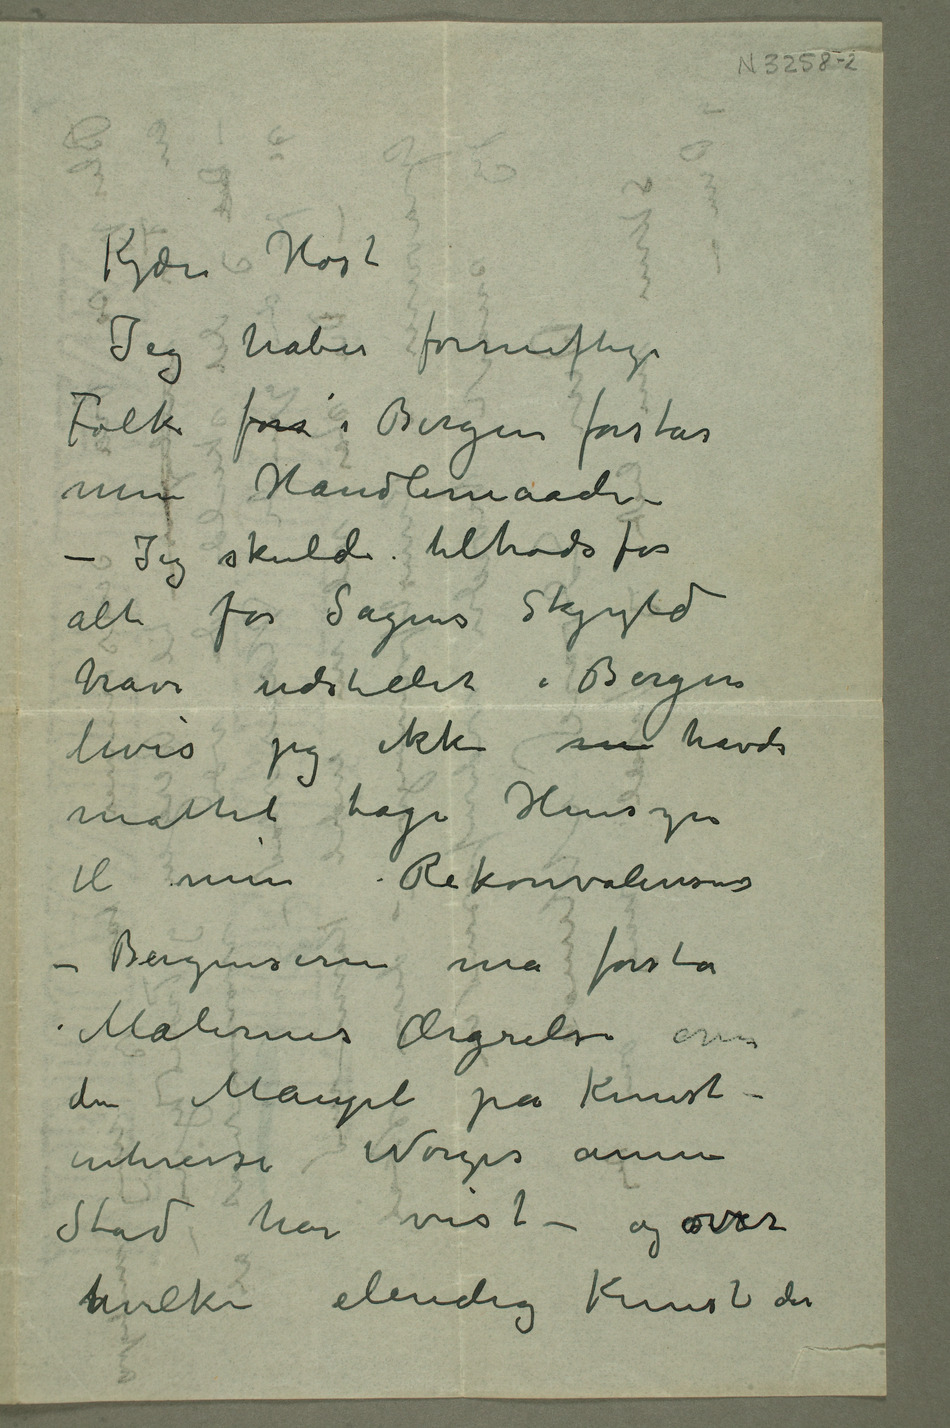 N 3258-2
Kjære Høst
Jeg håber fornuftige
Folk fors i Bergen forstår
min Handlemaade –
– Jeg skulde tiltrods for
alt for Sagens Skjyld
have udstillet i Bergen
hvis jeg ikke havde
måttet tage Hensyn
til min Rekonvalensens
– Bergenserne må forstå
Malernes Ærgrelse om
den Mangel på Kunst-
interesse Norges anden
Stad har vist – og over
hvilken elendig Kunst der